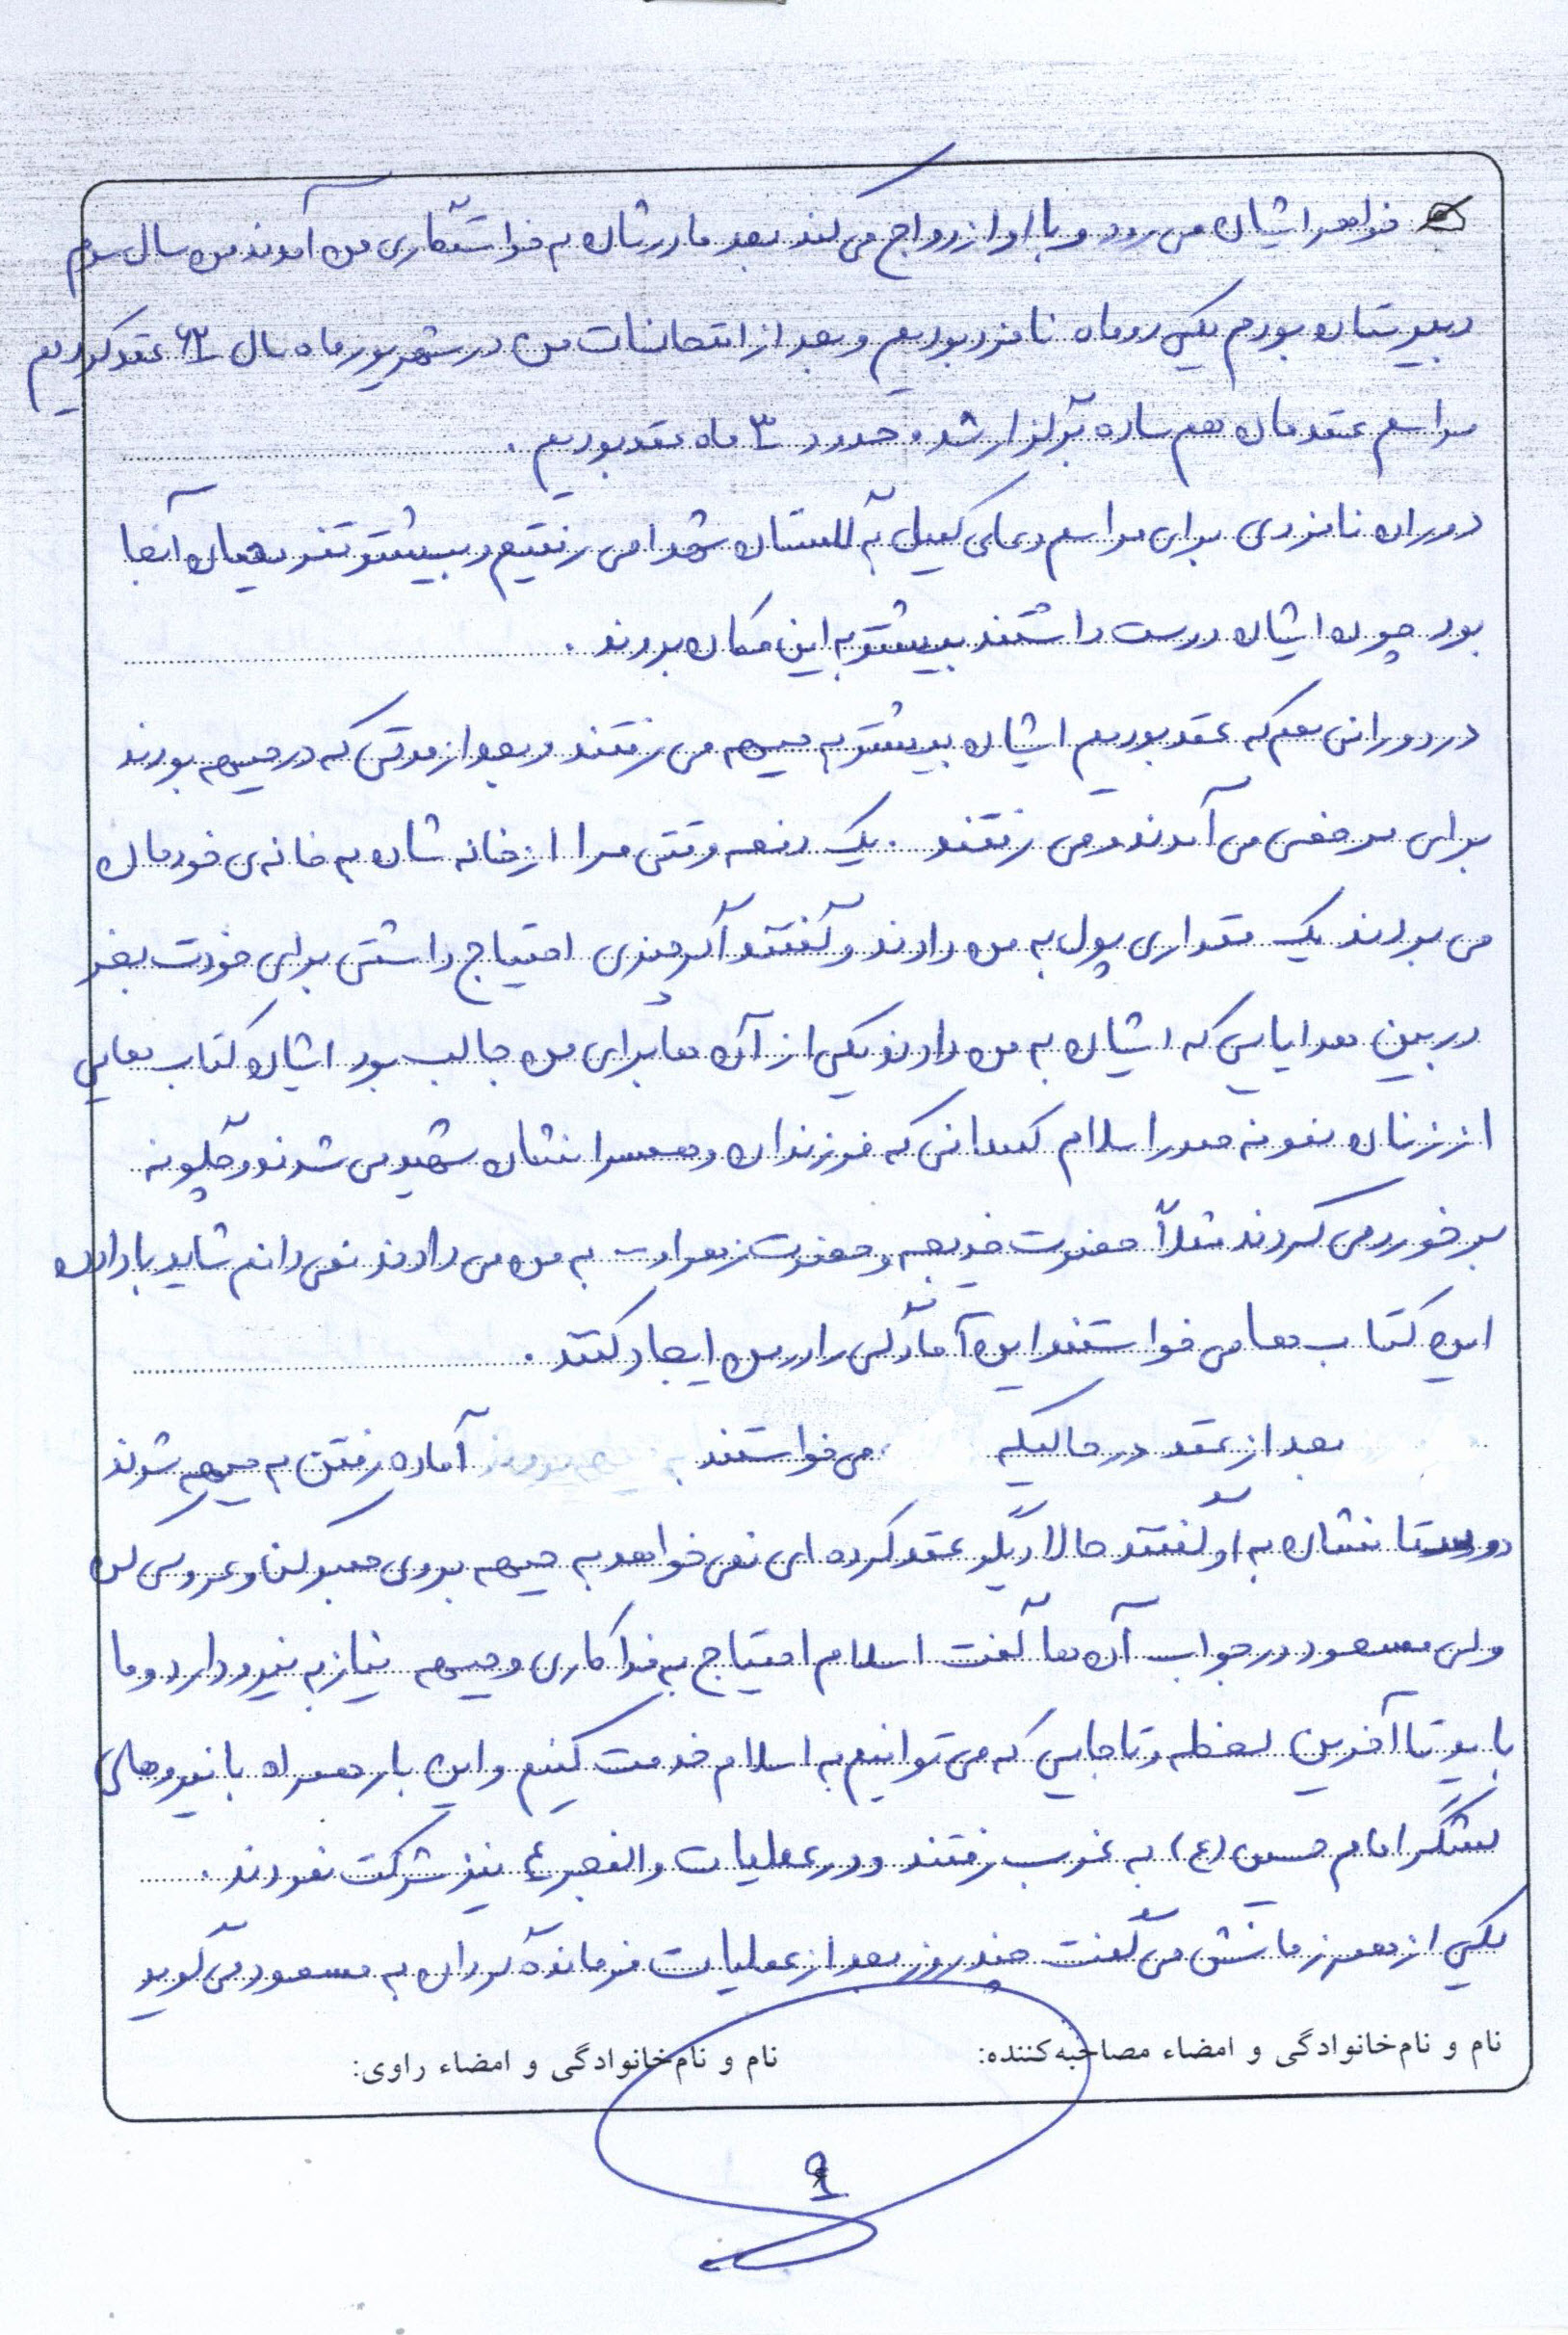 خواهر ایشان می رود و با او ازدواج می کند بعد مادرشان به خواستگاری من آمدند من سال سوم
دبیرستان بودم یکی دو ماه نامزد بودیم و بعد از امتحانات من در شهریور ماه سال ۶۲ عقد کردیم
مراسم عقدمان هم ساده برگزار شد و حدود ۳ ماه عقد بودیم .
دوران نامزدی برای مراسم دعای کمیل به گلستان شهدا می رفتیم و بیشتر تفریحمان آنجا
بود چون ایشان دوست داشتند بیشتر به این مکان بروند .
در دورانی هم که عقد بودیم ایشان بیشتر به جبهه می رفتند و بعد از مدتی که در جبهه بودند
برای مرخصی می آمدند و می رفتند . یک دفعه وقتی مرا از خانه شان به خانه ی خودمان
می بردند یک مقداری پول به من دادند و گفتند اگر چیزی احتیاج داشتی برای خودت بخر
در بین هدایایی که ایشان به من دادند یکی از آن ها برای من جالب بود ایشان کتاب هایی
از زنان نمونه صدر اسلام کسانی که فرزندان و همسرانشان شهید می شدند و چگونه
برخورد می کردند مثلاً حضرت خدیجه و حضرت زهرا و ... به من می دادند نمی دانم شاید با دادن
این کتاب ها می خواستند این آمادگی را در من ایجاد کنند .
بعد از عقد در حالیکه می خواستند آماده رفتن به جبهه شوند
دوستانشان به او گفتند حالا دیگر عقد کرده ای نمی خواهد به جبهه بروی صبر کن و عروسی کن
ولی مسعود در جواب آن ها گفت اسلام احتیاج به فداکاری و جبهه نیاز به نیرو دارد و ما
باید تا آخرین لحظه و تا جایی که می توانیم به اسلام خدمت کنیم و این بار همراه با نیروهای
لشگر امام حسین (ع) به غرب رفتند و در عملیات والفجر ٤ نیز شرکت نمودند .
یکی از همرزمانش می گفت چند روز بعد از عملیات فرمانده گردان به مسعود می گوید
نام و نام‌خانوادگی و امضاء مصاحبه‌کننده: نام و نام‌خانوادگی و امضاء راوی: